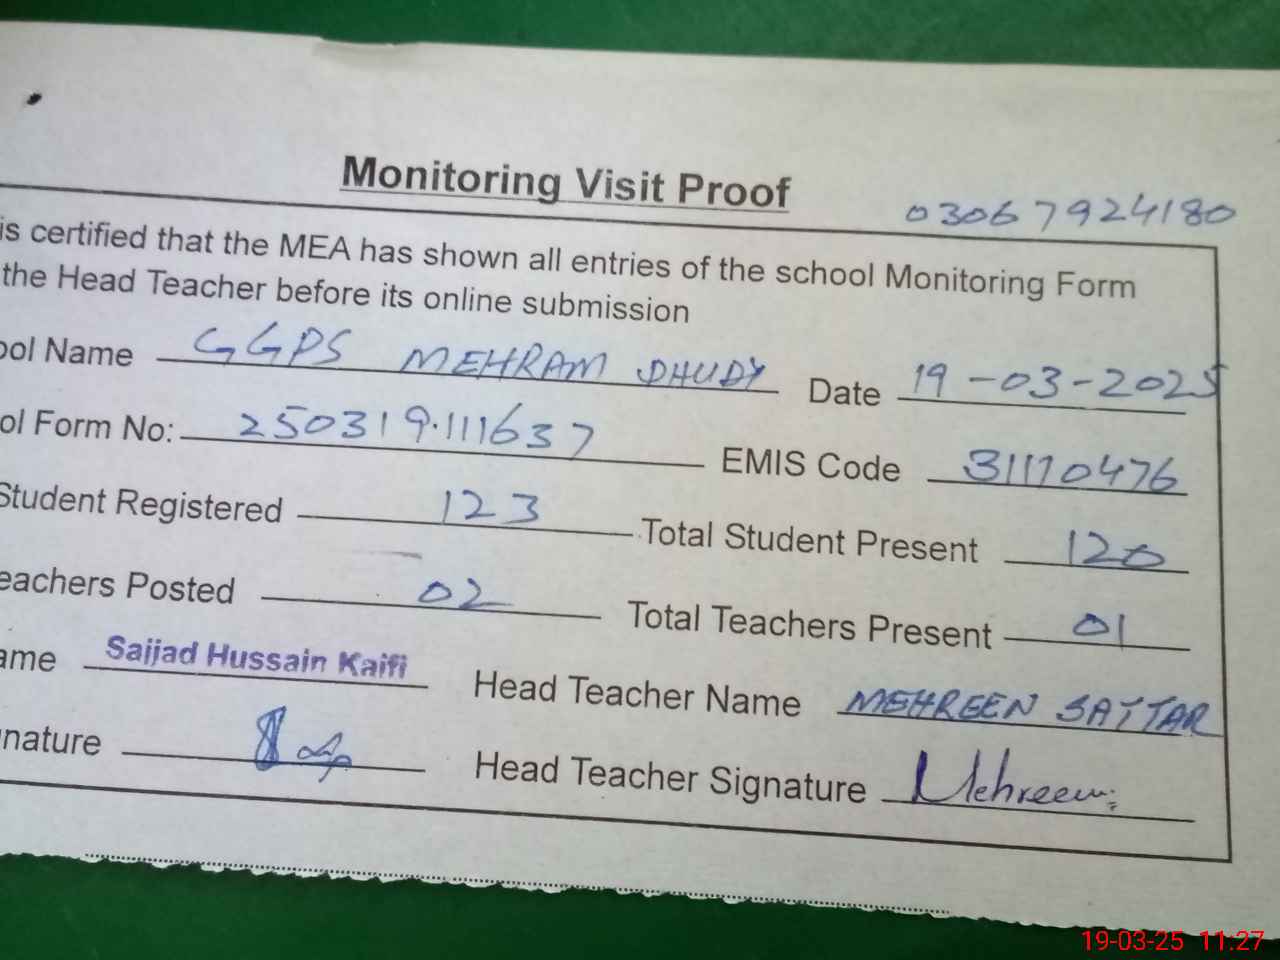 Monitoring Visit Proof
03067924180
is certified that the MEA has shown all entries of the school Monitoring Form
the Head Teacher before its online submission
ool Name GGPS MEHRAM DHUDY Date 19-03-2025
ol Form No: 250319.111637 EMIS Code 31170476
Student Registered 123 Total Student Present 120
eachers Posted 02 Total Teachers Present 01
ame Sajjad Hussain Kaifi Head Teacher Name MEHREEN SATTAR
nature Head Teacher Signature Mehreen
19-03-25 11:27